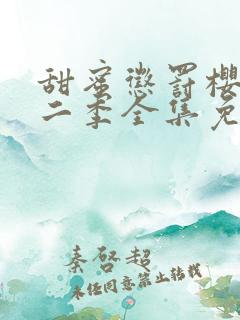 甜蜜惩罚樱
二季全集免
秦啓超
未经同意禁止转载